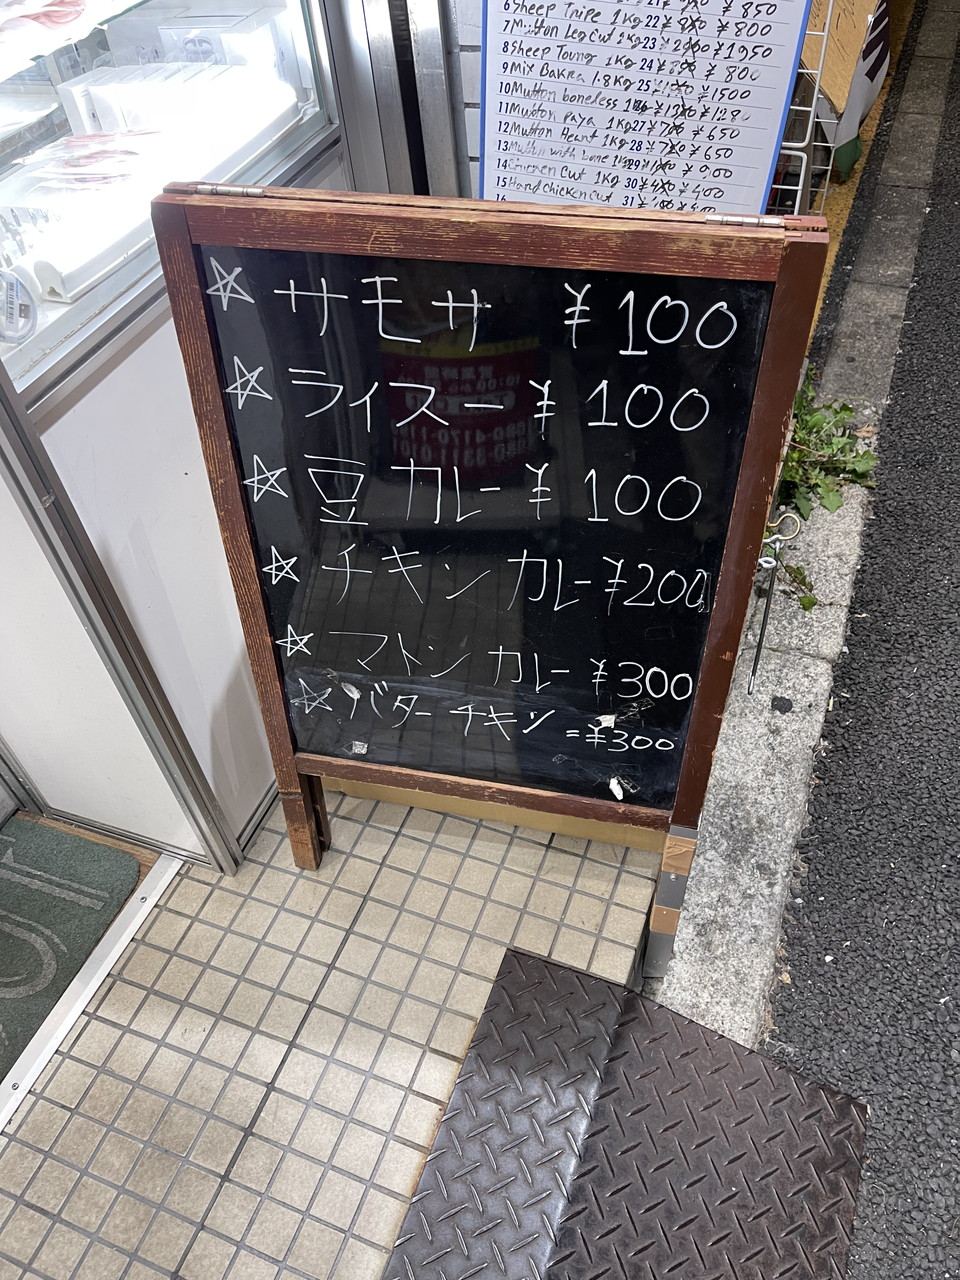 ¥850
6 Sheep Tripe 1Kg 22 ¥ 800
7 Mutton Leg Cut 2kg 23 ¥1950
8 Sheep Toung 1Kg 24 ¥ 800
9 Mix Bakra 1.8Kg 25 ¥1500
10 Mutton boneless ¥128
11 Mutton Paya 1Kg 27 ¥700 ¥650
12 Mutton Heart 1Kg 28 ¥ 650
13 Mutton with bone 29
14 Chicken Cut 1Kg 30 ¥400
15 Hard Chicken Cut 31
16
☆ サモサ ¥100
☆ ライスー ¥100
☆ 豆カレー ¥100
☆ チキンカレー ¥200
☆ マトンカレー ¥300
☆ バターチキン =¥300